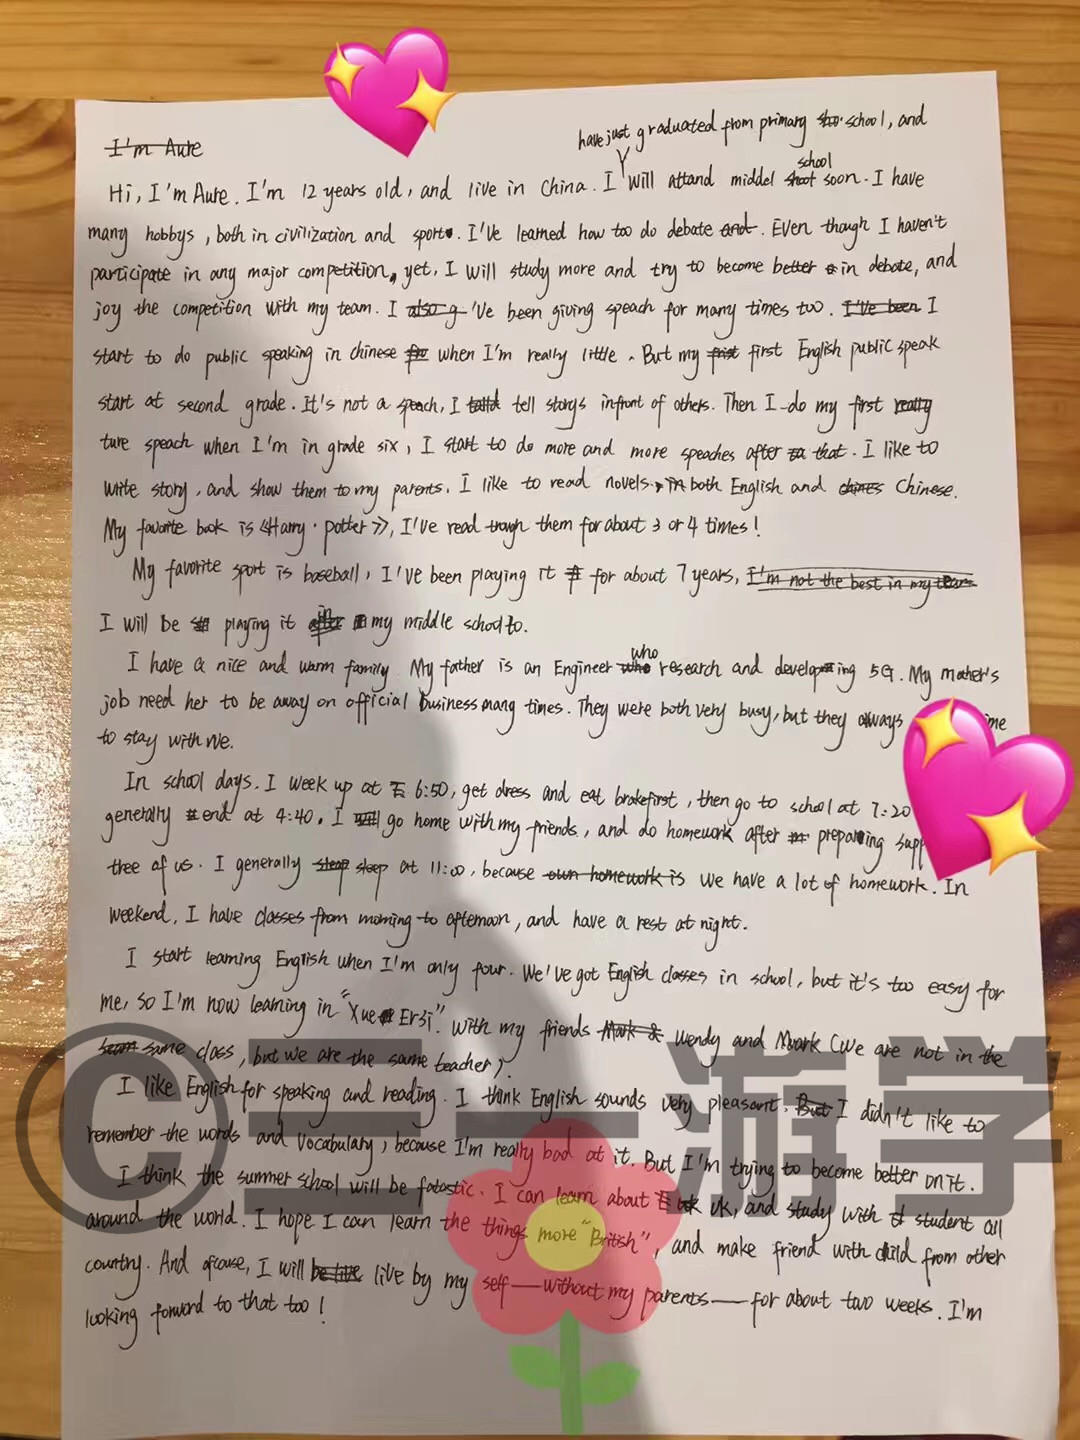 I'm Aure
have just graduated from primary school, and
Hi, I'm Aure. I'm 12 years old, and live in China. I will attand middel school soon. I have
many hobbys, both in civilization and sport. I've learned how too do debate and. Even though I haven't
participate in any major competition, yet, I will study more and try to become better in debate, and
joy the competition with my team. I also g 've been giving speach for many times too. I've been I
start to do public speaking in chinese when I'm really little. But my frist first English public speak
start at second grade. It's not a speach, I tell storys infront of others. Then I do my first really
ture speach when I'm in grade six, I start to do more and more speaches after that. I like to
write story, and show them to my parents. I like to read novels, in both English and chines Chinese.
My favorite book is 《Harry·potter》, I've read trough them for about 3 or 4 times!
My favorite sport is baseball, I've been playing it for about 7 years, I'm not the best in my team
I will be playing it after in my middle school to.
I have a nice and warm family My father is an Engineer who who research and developing 5G. My mother's
job need her to be away on official business many times. They were both very busy, but they always
to stay with me.
In school days. I week up at 6:50, get dress and eat brakefirst, then go to school at 7:20
generally end at 4:40. I will go home with my friends, and do homework after preparing
tree of us. I generally sleep at 11:00, because own homework is we have a lot of homework. In
weekend, I have classes from morning to afternoon, and have a rest at night.
I start learning English when I'm only four. We've got English classes in school, but it's too easy for
me, so I'm now learning in "Xue Er Si". With my friends Mark & Wendy and Mark (We are not in the
same class, but we are the same teacher).
I like English for speaking and reading. I think English sounds very pleasant. But I didn't like to
remember the words and vocabulary, because I'm really bad at it. But I'm trying to become better on it.
I think the summer school will be fatastic. I can learn about UK, and study with student all
around the world. I hope I can learn the things more "British", and make friend with child from other
country. And ofcouse, I will be live live by my self——without my parents——for about two weeks. I'm
looking forward to that too!
©三一游学